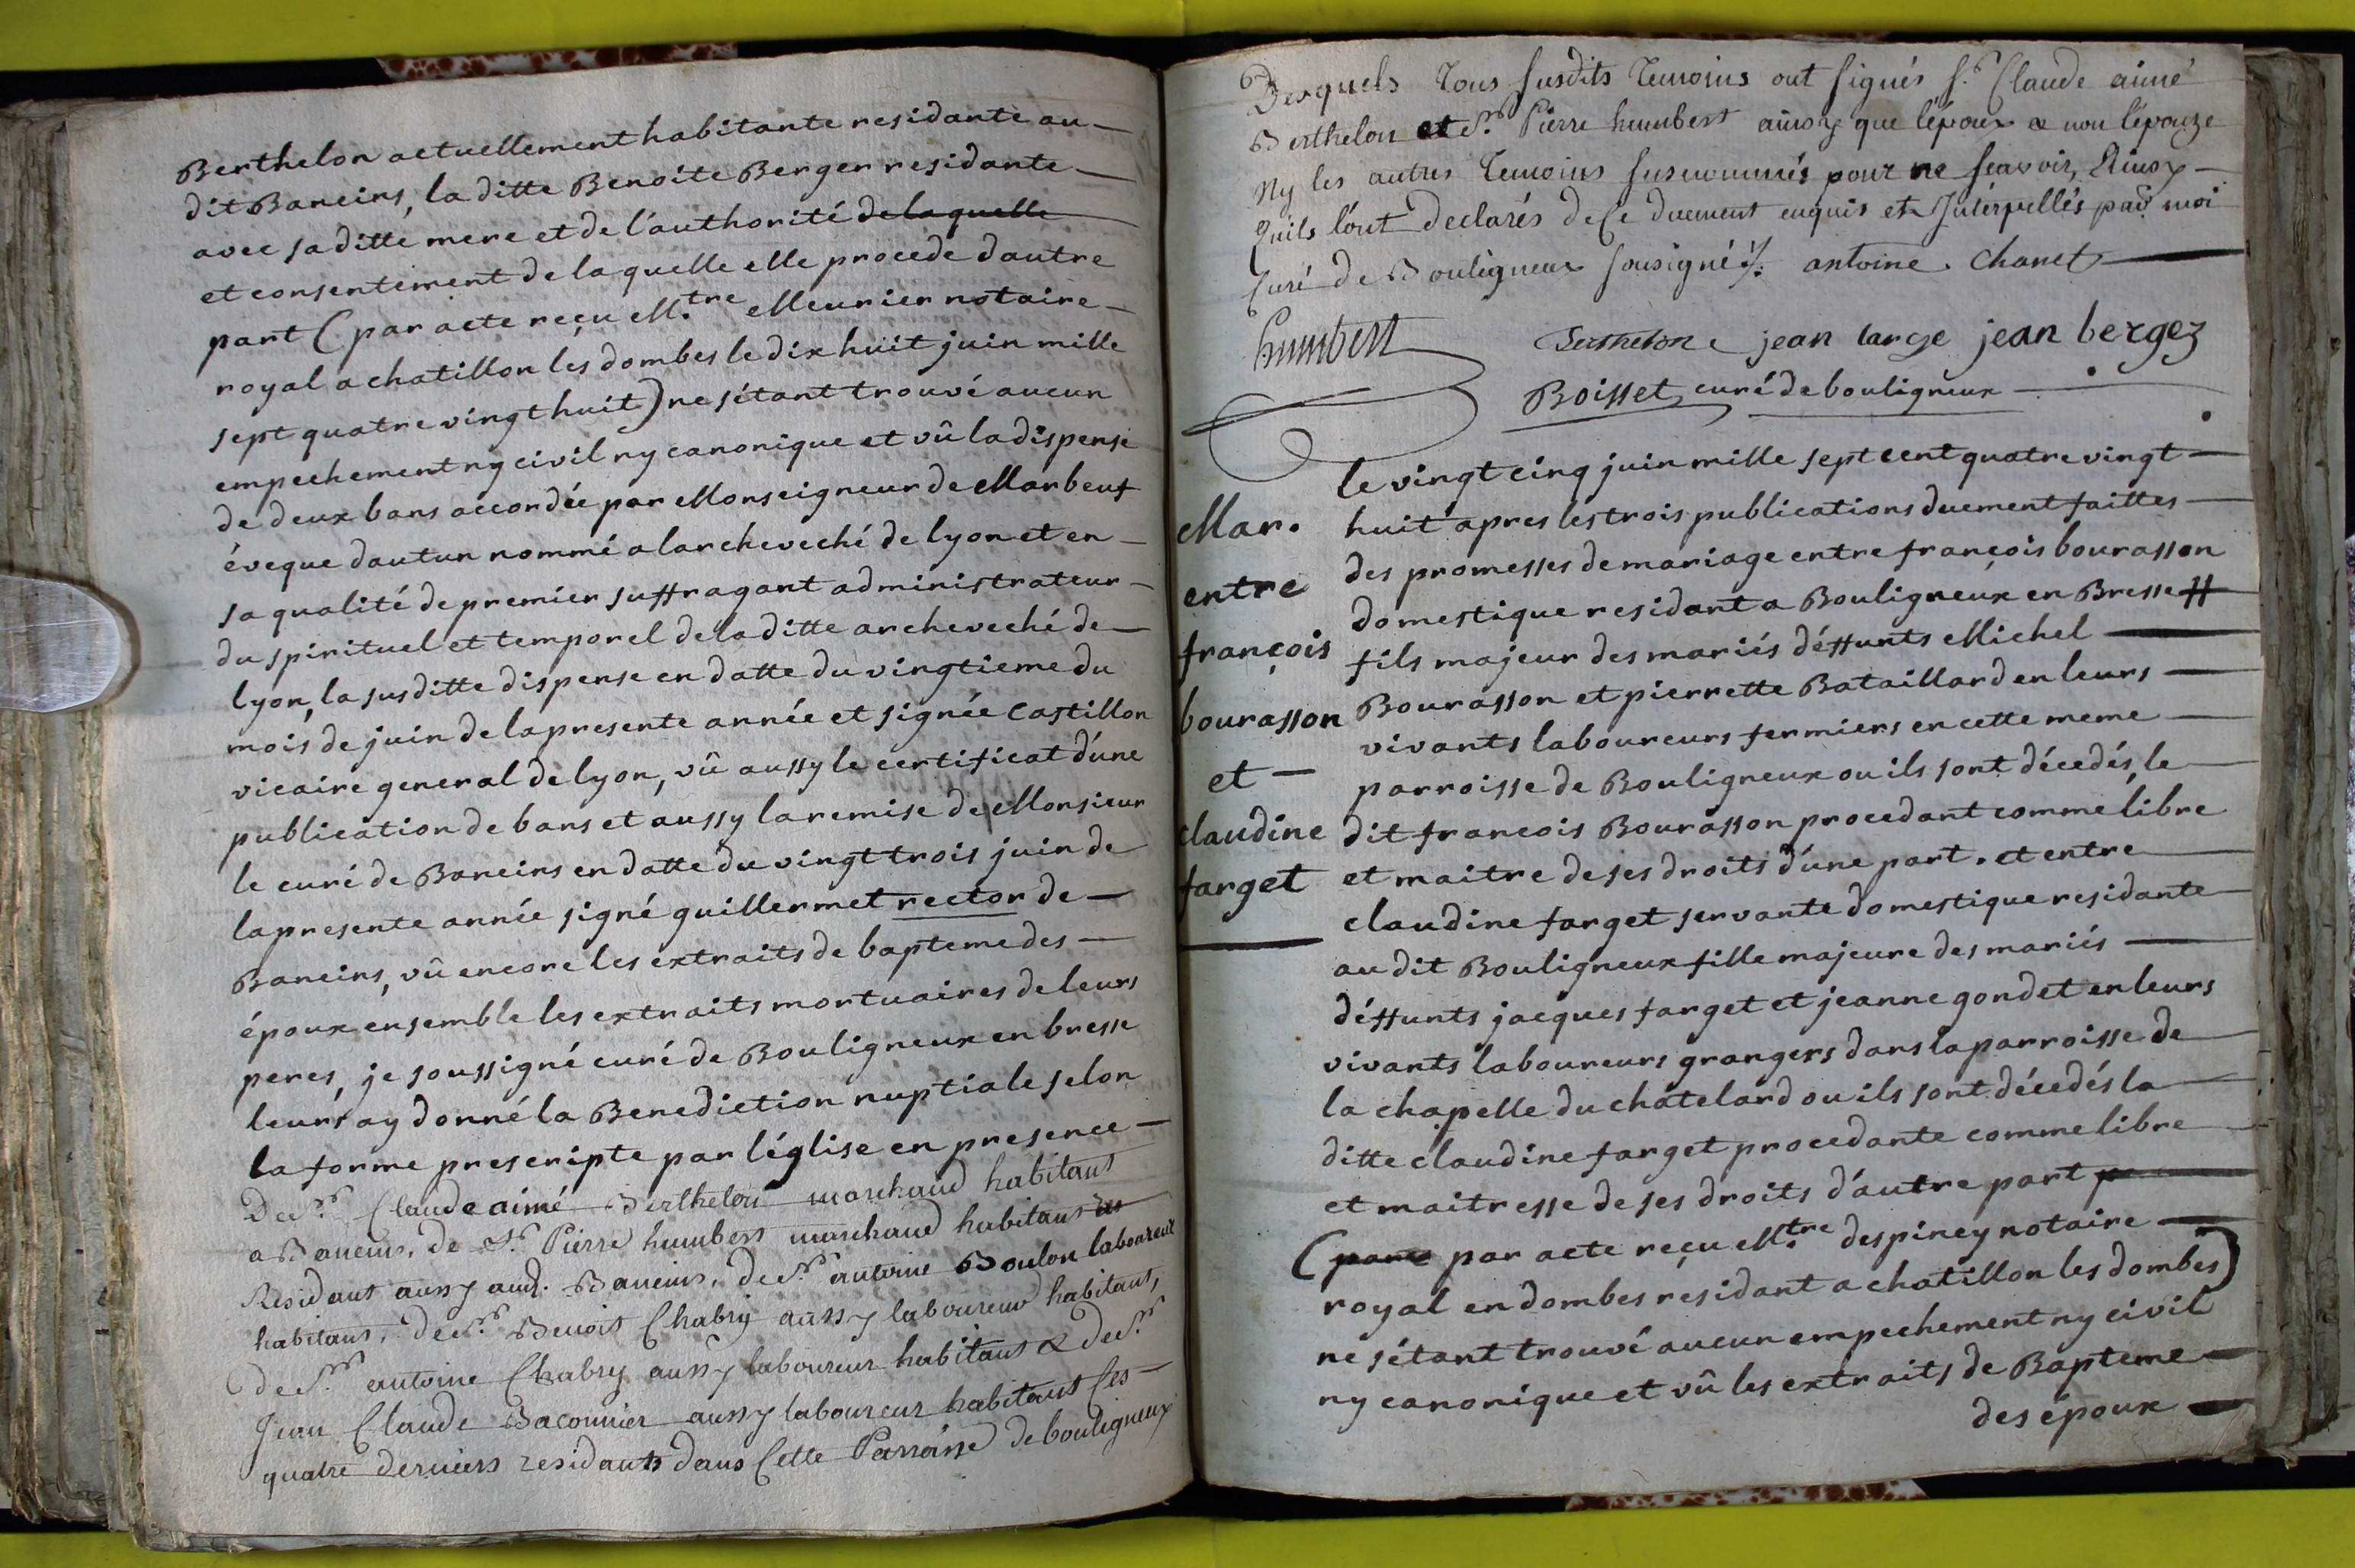 Berthelon actuellement habitante residante au-
dit Baneins, la ditte Benoite Berger residante
avec sa ditte mere et de l'authorité de laquelle
et consentement de laquelle elle procede d'autre
part (par acte reçu M.tre Meurier notaire
royal a chatillon les dombes le dix huit juin mille
sept quatre vingt huit) ne s'étant trouvé aucun
empechement ny civil ny canonique et vû la dispense
de deux bans accordée par Monseigneur de Marbeuf
éveque d'autun nommé a l'archeveché de lyon et en
sa qualité de premier suffragant administrateur
du spirituel et temporel de la ditte archeveché de
lyon, la susditte dispense en datte du vingtieme du
mois de juin de la presente année et signée Castillon
vicaire general de lyon, vû aussy le certificat d'une
publication de bans et aussy la remise de Monsieur
le curé de Baneins en datte du vingt trois juin de
la presente année signé guillermet rector de
Baneins, vû encore les extraits de bapteme des
époux ensemble les extraits mortuaires de leurs
peres, je soussigné curé de Bouligneux en bresse
leurs ay donné la Benediction nuptiale selon
la forme prescripte par l'église en presence
De Sr. Claude aimé Berthelon marchand habitant
a Baneins, de Sr. Pierre humbert marchand habitant
Residant aussy aud. Baneins, de Sr. antoine Boulon laboureur
habitant, de Sr. Benoit Chabry aussy laboureur habitant,
de Sr. antoine Chabry aussy laboureur habitant & de Sr.
Jean Claude Baconnier aussy laboureur habitant Ces
quatre derniers residants dans Cette Parroisse de bouligneux
Desquels Tous susdits Temoins ont signés Sr. Claude aimé
Berthelon et Sr. Pierre humbert ainsy que l'époux & non l'épouze
Ny les autres Temoins susnommés pour ne sçavoir, Ainsy
Quils l'ont declarés de Ce duement enquis et Interpellés par moi
Curé de Bouligneux sousigné ./. antoine Chanet
humbert Berthelon jean large jean berger
Boisset curé de bouligneux
Mar.
entre
françois
bourasson
et
claudine
farget
le vingt cinq juin mille sept cent quatre vingt
huit apres les trois publications duement faittes
des promesses de mariage entre françois bourasson
domestique residant a Bouligneux en Bresse
fils majeur des mariés déffunts Michel
Bourasson et pierrette Bataillard en leurs
vivants laboureurs fermiers en cette meme
parroisse de Bouligneux ou ils sont décedés, le
dit francois Bourasson procedant comme libre
et maitre de ses droits d'une part. et entre
claudine farget servante domestique residante
au dit Bouligneux fille majeure des mariés
déffunts jacques farget et jeanne gondet en leurs
vivants laboureurs grangers dans la parroisse de
la chapelle du chatelard ou ils sont décedés la
ditte claudine farget procedante comme libre
et maitresse de ses droits d'autre part
(par acte reçu M.tre despiney notaire
royal en dombes residant a chatillon les dombes)
ne s'étant trouvé aucun empechement ny civil
ny canonique et vû les extraits de Bapteme
des époux